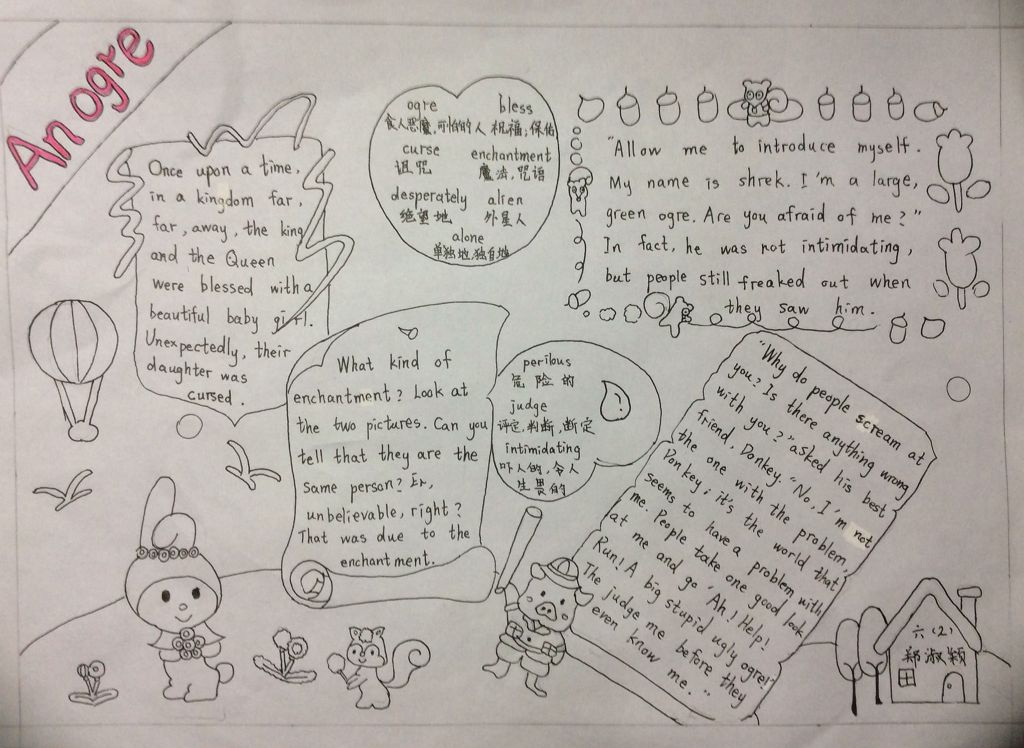 An ogre
Once upon a time,
in a kingdom far,
far, away, the king
and the Queen
were blessed with a
beautiful baby girl.
Unexpectedly, their
daughter was
cursed.
ogre bless
食人恶魔,可怕的人 祝福;保佑
curse enchantment
诅咒 魔法,咒语
desperately alien
绝望地 外星人
alone
单独地,独自地
"Allow me to introduce myself.
My name is shrek. I'm a large,
green ogre. Are you afraid of me?"
In fact, he was not intimidating,
but people still freaked out when
they saw him.
What kind of
enchantment? Look at
the two pictures. Can you
tell that they are the
same person? Er,
unbelievable, right?
That was due to the
enchantment.
perilous
危险的
judge
评定,判断,断定
intimidating
吓人的,令人
生畏的
"Why do people scream at
you? Is there anything wrong
with you?" asked his best
friend, Donkey. "No, I'm not
the one with the problem,
Donkey; it's the world that
seems to have a problem with
me. People take one good look
at me and go 'Ah! Help!
Run! A big stupid ugly ogre!'
The judge me before they
even know me."
六(2)
郑淑颖